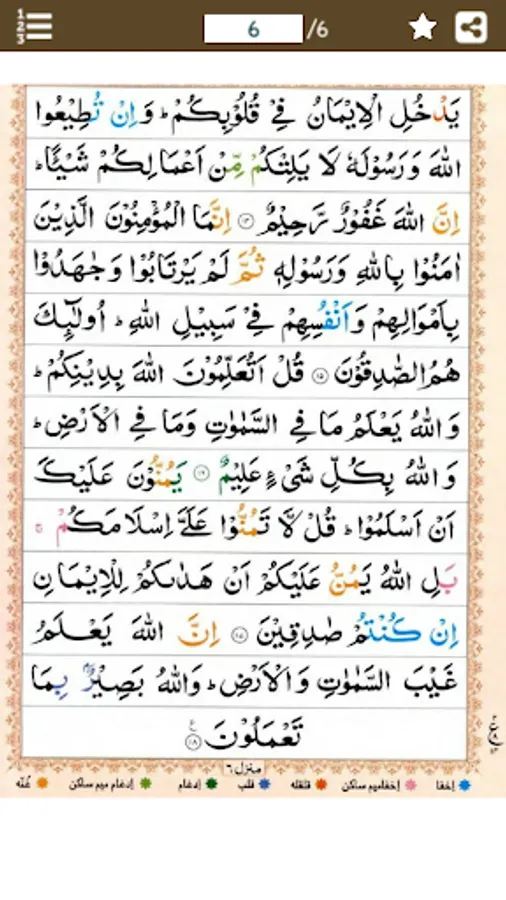 6 /6
يَدْخُلِ الْاِيْمَانُ فِيْ قُلُوْبِكُمْ ؕ وَاِنْ تُطِيْعُوا
اللهَ وَرَسُوْلَهٗ لَا يَلِتْكُمْ مِّنْ اَعْمَالِكُمْ شَيْـًٔا ؕ
اِنَّ اللهَ غَفُوْرٌ رَّحِيْمٌ ﴿۱۴﴾ اِنَّمَا الْمُؤْمِنُوْنَ الَّذِيْنَ
اٰمَنُوْا بِاللهِ وَرَسُوْلِهٖ ثُمَّ لَمْ يَرْتَابُوْا وَجٰهَدُوْا
بِاَمْوَالِهِمْ وَاَنْفُسِهِمْ فِيْ سَبِيْلِ اللهِ ؕ اُولٰٓئِكَ
هُمُ الصّٰدِقُوْنَ ﴿۱۵﴾ قُلْ اَتُعَلِّمُوْنَ اللهَ بِدِيْنِكُمْ ؕ
وَاللهُ يَعْلَمُ مَا فِي السَّمٰوٰتِ وَمَا فِي الْاَرْضِ ؕ
وَاللهُ بِكُلِّ شَيْءٍ عَلِيْمٌ ﴿۱۶﴾ يَمُنُّوْنَ عَلَيْكَ
اَنْ اَسْلَمُوْا ؕ قُلْ لَّا تَمُنُّوْا عَلَيَّ اِسْلَامَكُمْ ۚ
بَلِ اللهُ يَمُنُّ عَلَيْكُمْ اَنْ هَدٰىكُمْ لِلْاِيْمَانِ
اِنْ كُنْتُمْ صٰدِقِيْنَ ﴿۱۷﴾ اِنَّ اللهَ يَعْلَمُ
غَيْبَ السَّمٰوٰتِ وَالْاَرْضِ ؕ وَاللهُ بَصِيْرٌۢ بِمَا
تَعْمَلُوْنَ ﴿۱۸﴾
منزل ٦
إخفا إخفامیم ساکن قلقله قلب إدغام إدغام میم ساکن غُنّه